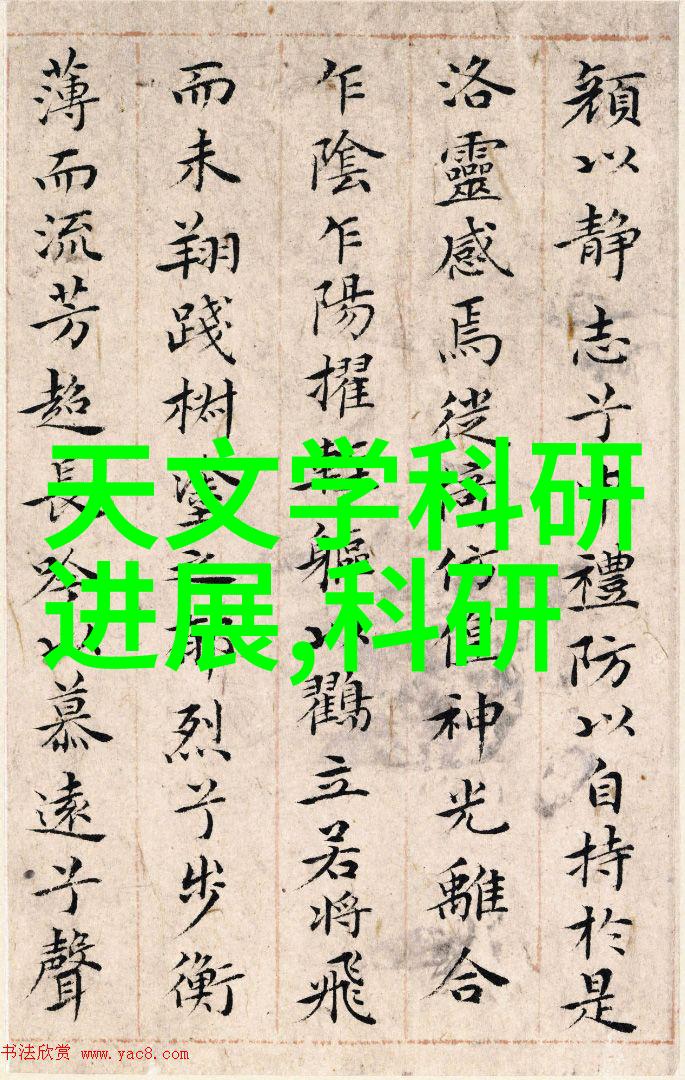 顔以静志兮申禮防以自持於是
洛靈感焉徙倚仿偟神光離合
乍陰乍陽擢輕軀以鸖立若将飛
而未翔踐椒塗之郁烈兮步衡
薄而流芳超長吟以慕遠兮聲
天文学科研
进展,科研
书法欣赏 www.yac8.com